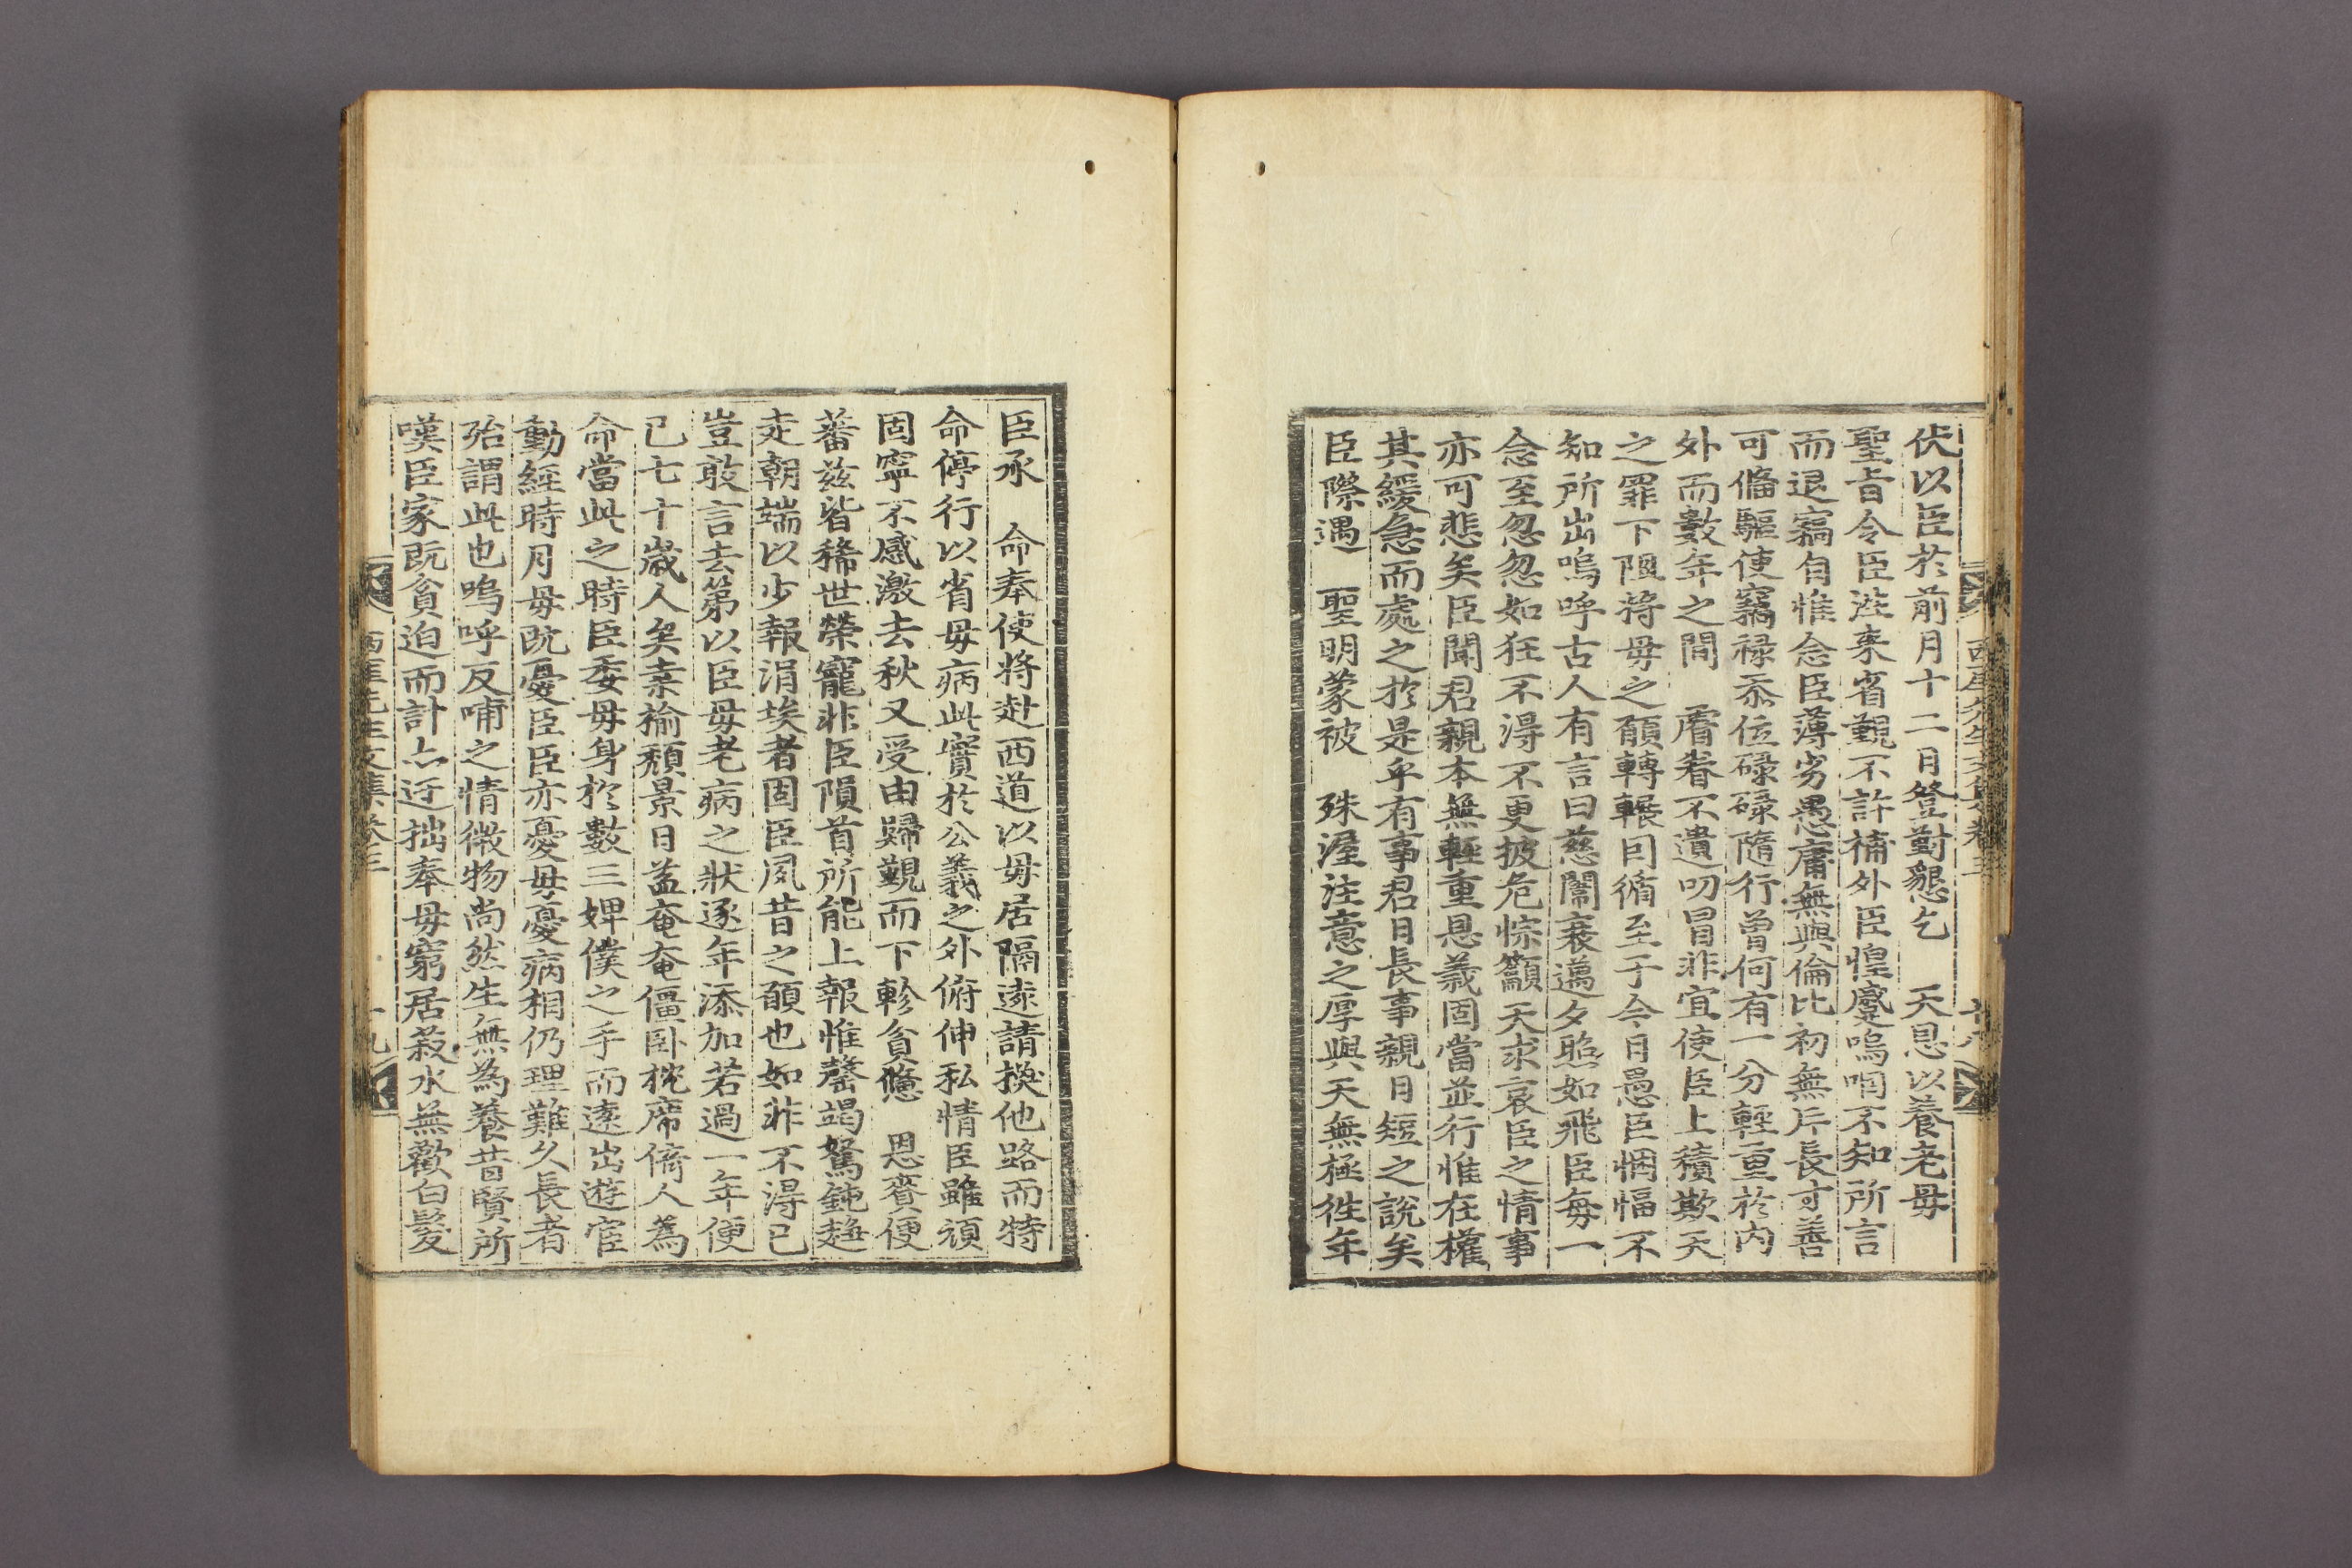 西厓先生文集卷三
伏以臣於前月十二月登對懇乞　天恩以養老母
聖旨令臣往來省覲不許補外臣惶蹙嗚咽不知所言
而退竊自惟念臣薄劣愚庸無與倫比初無片長寸善
可備驅使竊祿忝位碌碌隨行曾何有一分輕重於內
外而數年之間　眷不遺叨冒非宜使臣上積欺天
之罪下阻將母之願轉輾因循至于今日愚臣悃愊不
知所出嗚呼古人有言曰慈闈衰邁夕照如飛臣每一
念至忽忽如狂不得不更披危悰籲天求哀臣之情事
亦可悲矣臣聞君親本無輕重恩義固當並行惟在權
其緩急而處之於是乎有事君日長事親日短之說矣
臣際遇　聖明蒙被　殊渥注意之厚與天無極往年
臣承　命奉使將赴西道以母居隔遠請換他路而特
命停行以省母病此實於公義之外俯伸私情臣雖頑
固寧不感激去秋又受由歸覲而下軫貧憊　恩賚便
蕃玆皆稀世榮寵非臣隕首所能上報惟罄竭駑鈍趨
走朝端以少報涓埃者固臣夙昔之願也如非不得已
豈敢言去第以臣母老病之狀逐年添加若過一年便
已七十歲人矣桑榆頹景日益奄奄僵臥枕席倚人爲
命當此之時臣委母身於數三婢僕之手而遠出遊宦
動經時月母既憂臣臣亦憂母憂病相仍理難久長者
殆謂此也嗚呼反哺之情微物尚然生無爲養昔賢所
嘆臣家既貧迫而計亦迂拙奉母窮居菽水無歡白髮
西厓先生文集卷三
十九